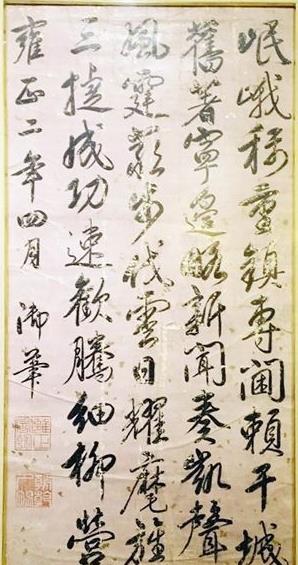 岷峨稱重鎮專閫賴干城
舊著寧邊略新聞奏凱聲
風霆嚴步伐雲日耀麾旌
三捷成功速歡騰細柳營
雍正二年四月 御筆